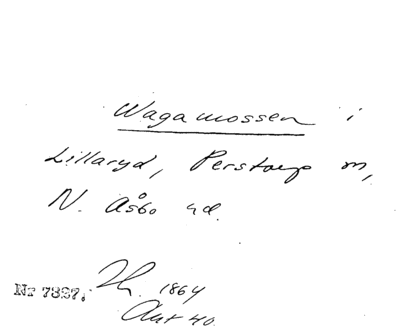 Wagamossen i
Lillaryd, Perstorp m,
N. Åsbo hd.
Nr 7327, Th. 1864
Ant 40.